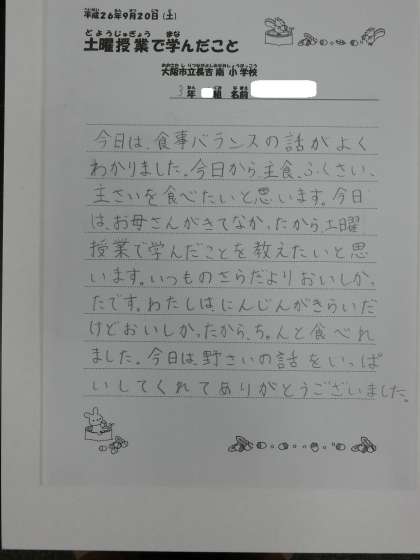 平成26年9月20日(土)
どようじゅぎょう まな
土曜授業で学んだこと
大阪市立長吉南小学校
3年 組 名前
今日は、食事バランスの話がよく
わかりました。今日から主食、ふくさい、
主さいを食べたいと思います。今日
は、お母さんがきてなかったから、土曜
授業で学んだことを教えたいと思
います。いつものさらだよりおいしかっ
たです。わたしは、にんじんがきらいだ
けどおいしかったから、ちゃんと食べれ
ました。今日は、野さいの話をいっぱ
いしてくれてありがとうございました。